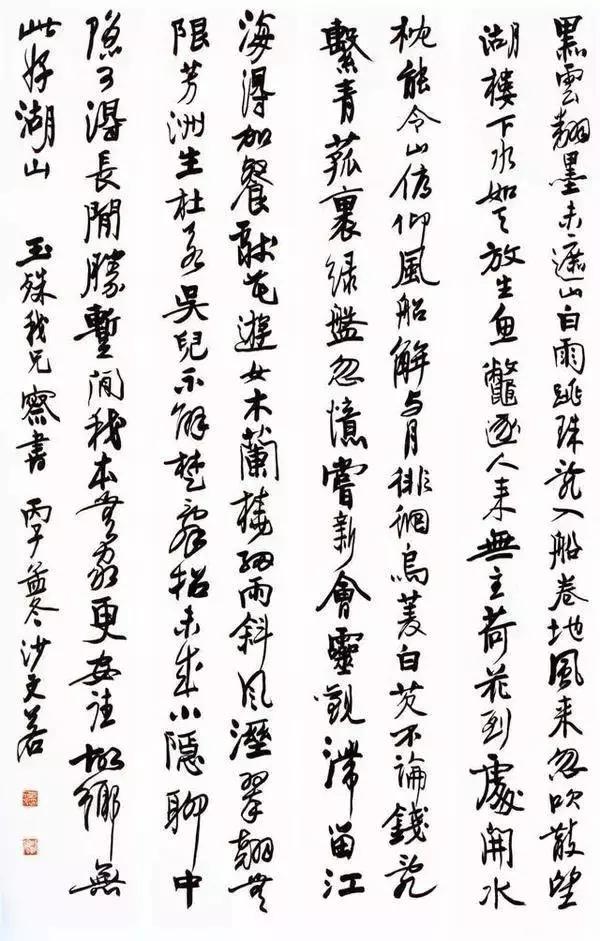 黑雲翻墨未遮山白雨跳珠亂入船卷地風来忽吹散望
湖樓下水如天放生魚鱉逐人来無主荷花到處開水
枕能令山俯仰風船解与月徘徊烏菱白芡不論錢亂
繫青菰裹綠盤忽憶嘗新會靈觀滯留江
海得加餐獻花遊女木蘭橈細雨斜風溼翠翹無
限芳洲生杜若吳兒不解楚辭招未成小隱聊中
隱可得長閒勝暫閒我本無家更安往故鄉無
此好湖山 玉殊我兄察書 丙子孟冬沙文若